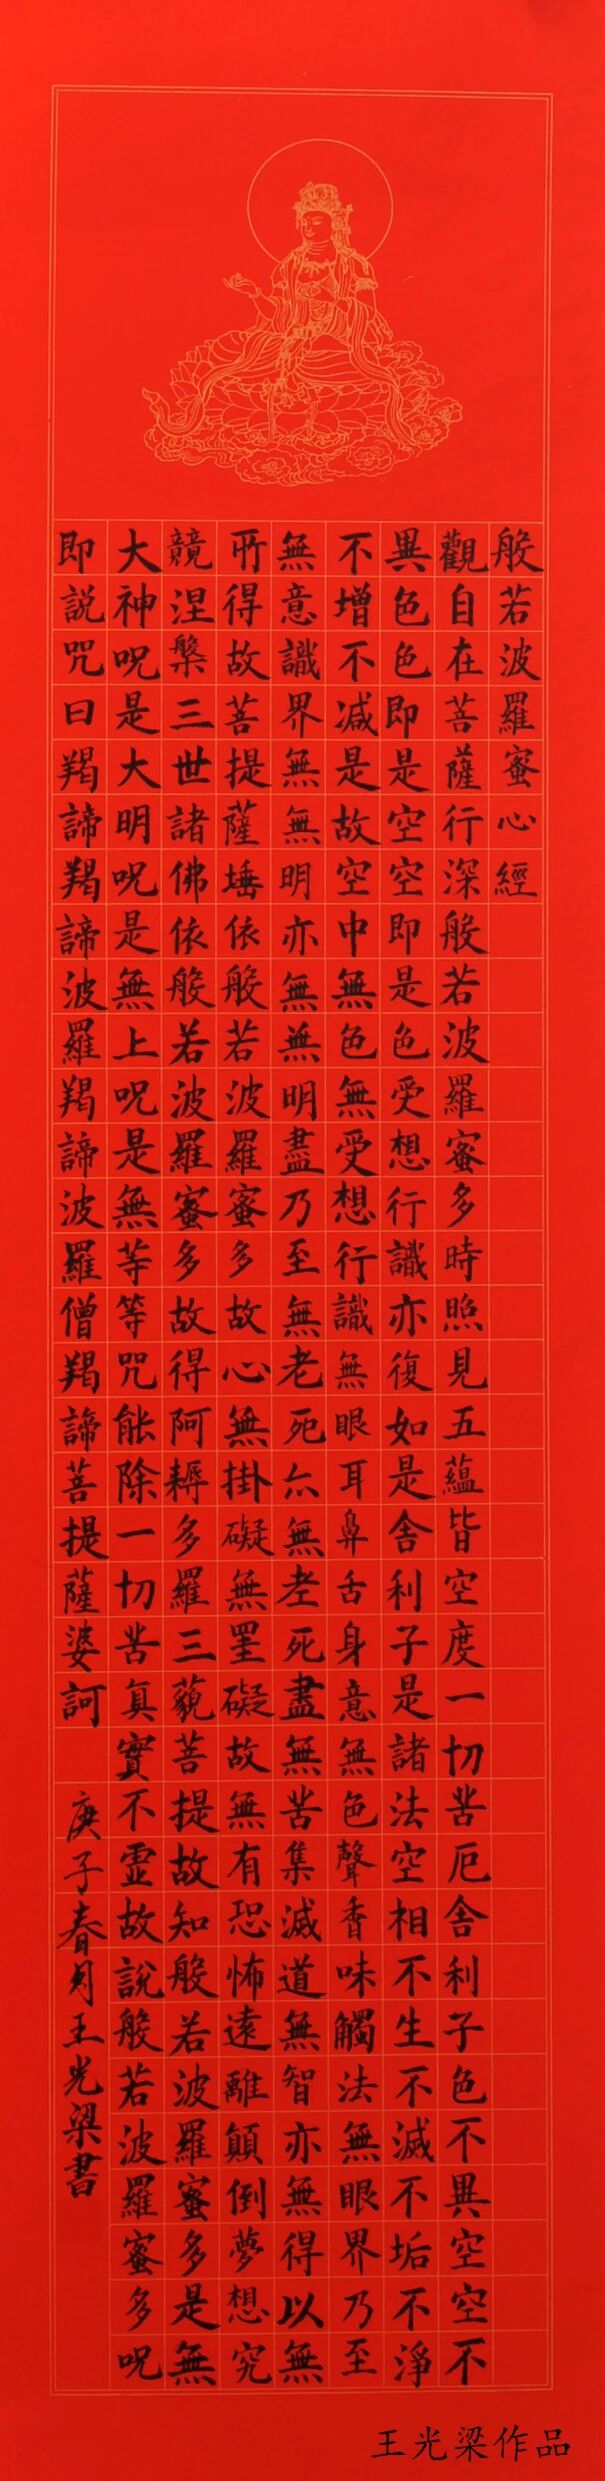 般若波羅蜜心經
觀自在菩薩行深般若波羅蜜多時照見五蘊皆空度一切苦厄舍利子色不異空空不
異色色即是空空即是色受想行識亦復如是舍利子是諸法空相不生不滅不垢不淨
不增不减是故空中無色無受想行識無眼耳鼻舌身意無色聲香味觸法無眼界乃至
無意識界無無明亦無無明盡乃至無老死亦無老死盡無苦集滅道無智亦無得以無
所得故菩提薩埵依般若波羅蜜多故心無掛礙無罣礙故無有恐怖遠離顛倒夢想究
競涅槃三世諸佛依般若波羅蜜多故得阿耨多羅三藐菩提故知般若波羅蜜多是無
大神呪是大明呪是無上呪是無等等咒能除一切苦真實不虛故說般若波羅蜜多呪
即說咒曰羯諦羯諦波羅羯諦波羅僧羯諦菩提薩婆訶
庚子春月王光梁書
王光梁作品